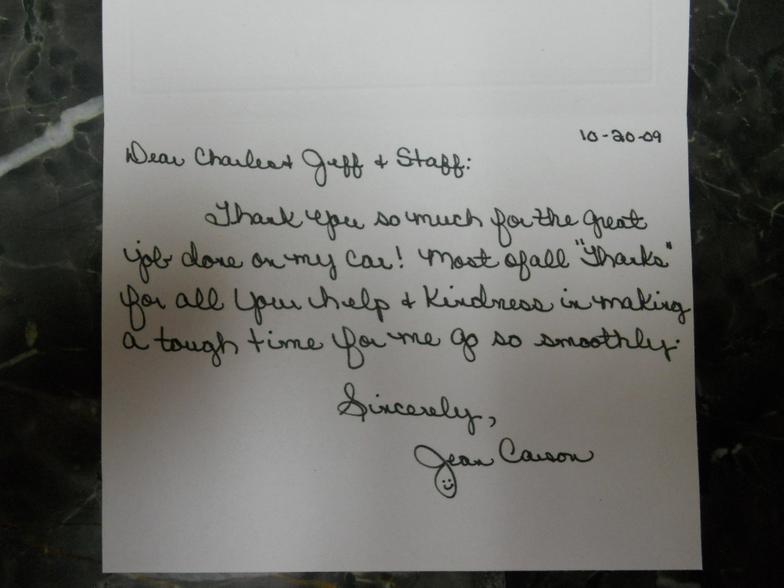 10-20-09
Dear Charles & Jeff & Staff:
Thank you so much for the great
job done on my car! Most of all "Thanks"
for all your help & kindness in making
a tough time for me go so smoothly.
Sincerely,
Jean